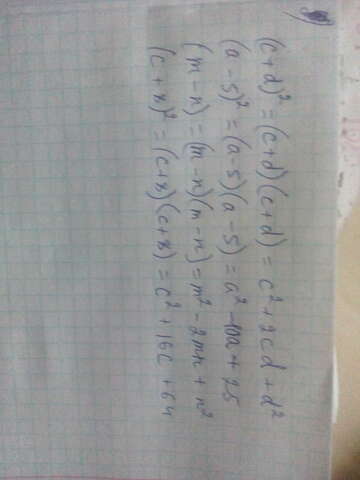 (c+d)² = (c+d)(c+d) = c² + 2cd + d²
(a-5)² = (a-5)(a-5) = a² - 10a + 25
(m-n) = (m-n)(m-n) = m² - 2mn + n²
(c+8)² = (c+8)(c+8) = c² + 16c + 64